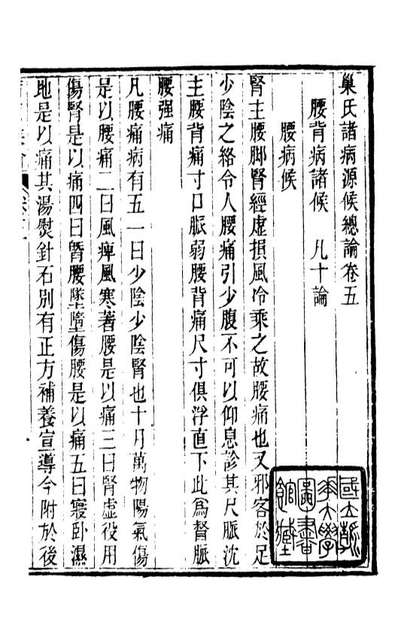 巢氏諸病源候總論卷五
腰背病諸候 凡十論
腰病候
腎主腰脚腎經虛損風冷乘之故腰痛也又邪客於足
少陰之絡令人腰痛引少腹不可以仰息診其尺脈沈
主腰背痛寸口脈弱腰背痛尺寸俱浮直下此為督脈
腰强痛
凡腰痛病有五一曰少陰少陰腎也十月萬物陽氣傷
是以腰痛二曰風痺風寒著腰是以痛三曰腎虛役用
傷腎是以痛四曰䐴腰墜墮傷腰是以痛五曰寢卧濕
地是以痛其湯熨針石別有正方補養宣導今附於後